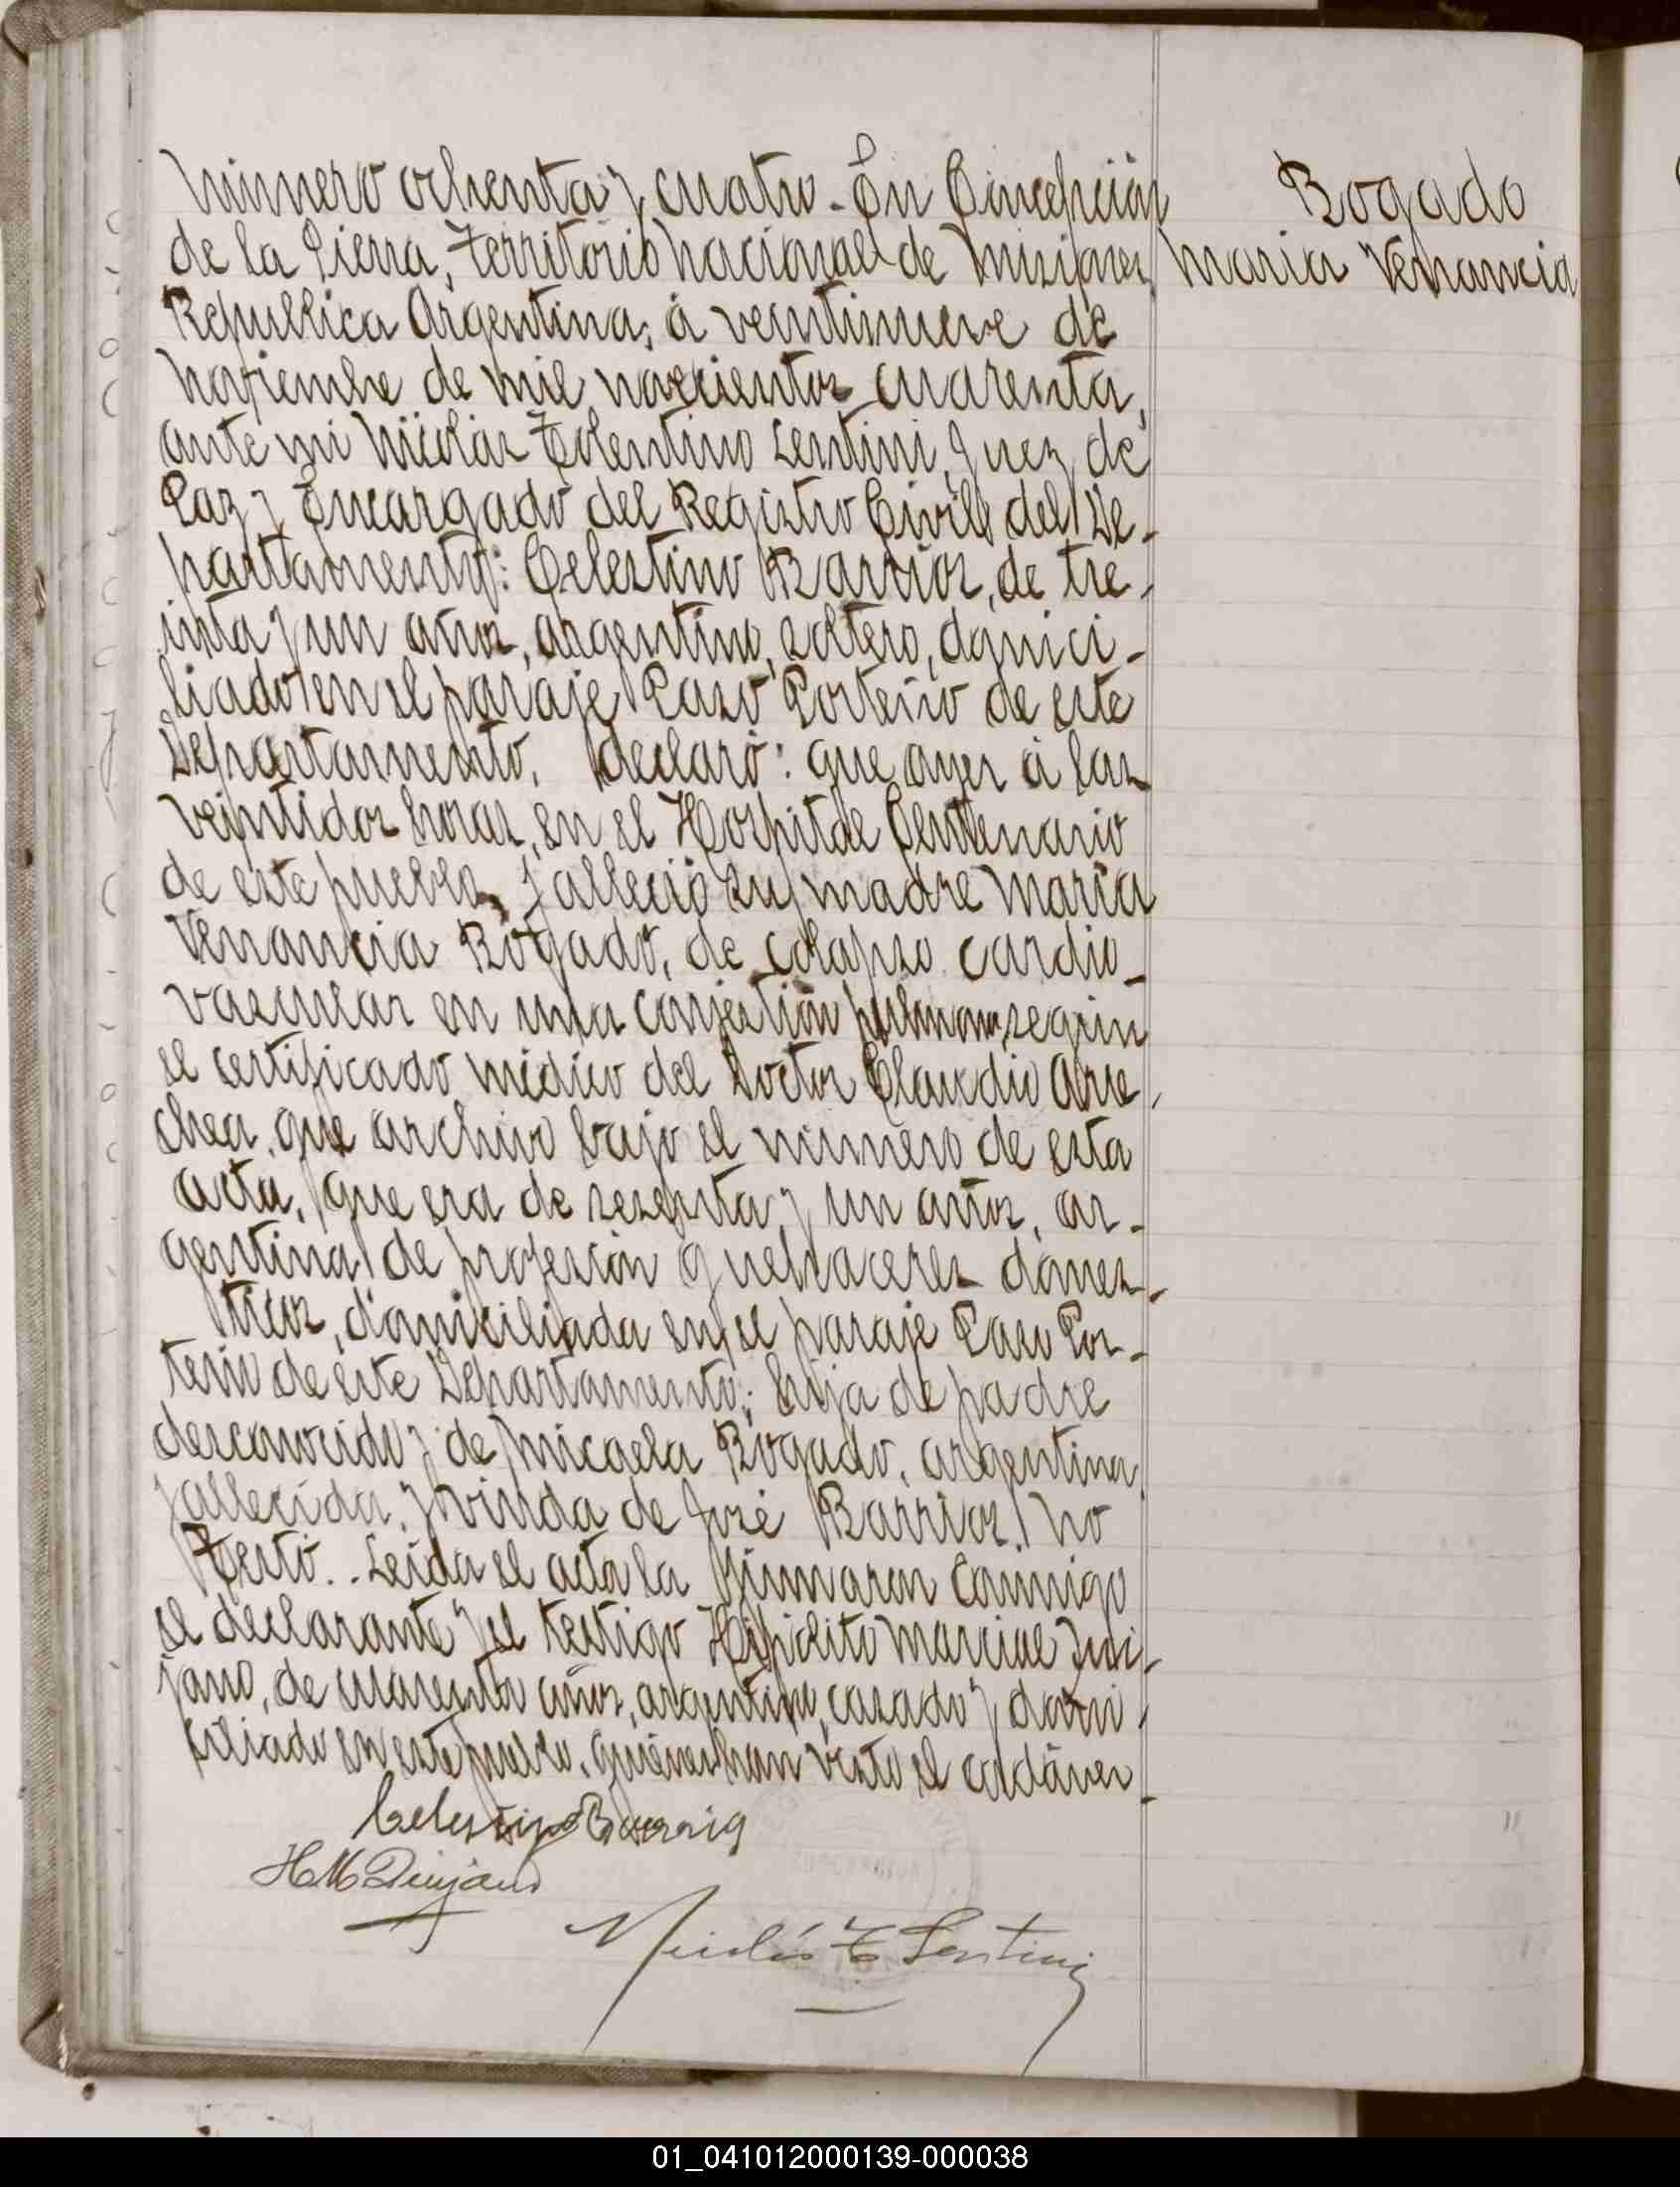 Número ochenta y cuatro - En Concepción
de la Sierra, Territorio Nacional de Misiones,
República Argentina, á veintinueve de
Noviembre de mil novecientos cuarenta,
ante mi Nicolás Tolentino Lentini, Juez de
Paz y Encargado del Registro Civil del De-
partamento: Celestino Barrios, de tre-
inta y un años, argentino, soltero, domici-
liado en el paraje Paso Porteño de este
Departamento, declaró: que ayer á las
veintidos horas, en el Hospital Centenario
de este pueblo, falleció su madre María
Venancia Bogado, de colapso cardio-
vascular en una conjestión pulmonar, según
el certificado médico del Doctor Claudio Arre-
chea, que archivo bajo el número de esta
acta, que era de sesenta y un años, ar-
gentina, de profesión quehaceres domés-
ticos, domiciliada en el paraje Paso Por-
teño de este Departamento; hija de padre
desconocido y de Micaela Bogado, argentina,
fallecida, y viuda de José Barrios. No
Testó.. Leída el acta la firmaron conmigo
el declarante y el testigo Hipólito Marcial
de cuarenta años, argentino, casado y domi-
ciliado en este pueblo, quienes han visto el cadáver -
Celestino Barrios
H M
Nicolás T Lentini
Bogado
María Venancia
01_041012000139-000038